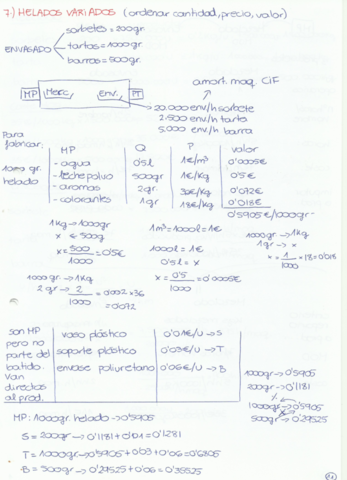 7.) HELADOS VARIADOS (ordenar cantidad, precio, valor)
sorbetes = 200gr.
ENVASADO tartas = 1000gr.
barras = 500gr.
amort. maq CIF
MP Merc, env. PT
20.000 env/h sorbete
2.500 env/h tarta
5.000 env/h barra
Para fabricar: MP Q P valor
1000 gr. helado
- agua 0'5l 1€/m³ 0'0005€
- leche polvo 500gr 1€/kg 0'5€
- aromas 2gr. 36€/kg 0'072€
- colorantes 1gr 18€/kg 0'018€
0'5905€/1000gr
1kg → 1000gr
x ← 500g
x = 500/1000 = 0'5€
1m³ = 1000l = 1€
1000l = 1€
0'5l = x
x = 0'5/1000 = 0'0005€
1000gr → 1kg
1gr → x
x = 1/1000 = 18 = 0'018
1000gr. → 1kg
2gr → 2/1000 = 0'002 × 36 = 0'072
son MP pero no parte del batido. Van directas al prod.
vaso plástico 0'01€/u → S
soporte plástico 0'03€/u → T
envase poliuretano 0'06€/u → B
1000gr → 0'5905
200gr → 0'1181
1000gr → 0'5905
500gr → 0'29525
MP: 1000gr helado → 0'5905
S = 200gr → 0'1181 + 0'01 = 0'1281
T = 1000gr → 0'5905 + 0'03 + 0'06 = 0'6805
B = 500gr → 0'29525 + 0'06 = 0'35525